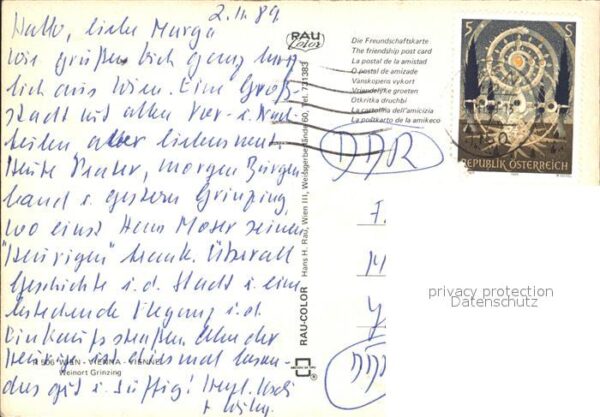 2.11.89
Hallo, liebe Marga
wir grüßen Dich ganz herz-
lich aus Wien. Eine Groß-
stadt mit allen Vor- u. Nach-
teilen aber liebenswert
Heute Prater, morgen Burgen-
land u. gestern Grinzing
wo einst Hans Moser seinen
"Heurigen" trank. Überall
Geschichte i. d. Stadt u. eine
bestechende Eleganz i. d.
Einkaufsstraßen. Aber der
Heurige ist diesmal beson-
ders gut u. süffig! Herzl.
RAU
Color
Die Freundschaftskarte
The friendship post card
La postal de la amistad
O postal de amizade
Vanskapens vykort
Vriendelyke groeten
Otkritka druchbi
La cartolina dell'amicizia
La poŝtkarto de la amikeco
5 S
REPUBLIK ÖSTERREICH
DDR
DDR
RAU-COLOR Hans H. Rau, Wien III, Weissgerberlände 60, Tel. 731383
R 906 WIEN - VIENNA - VIENNE
Weinort Grinzing
privacy protection
Datenschutz